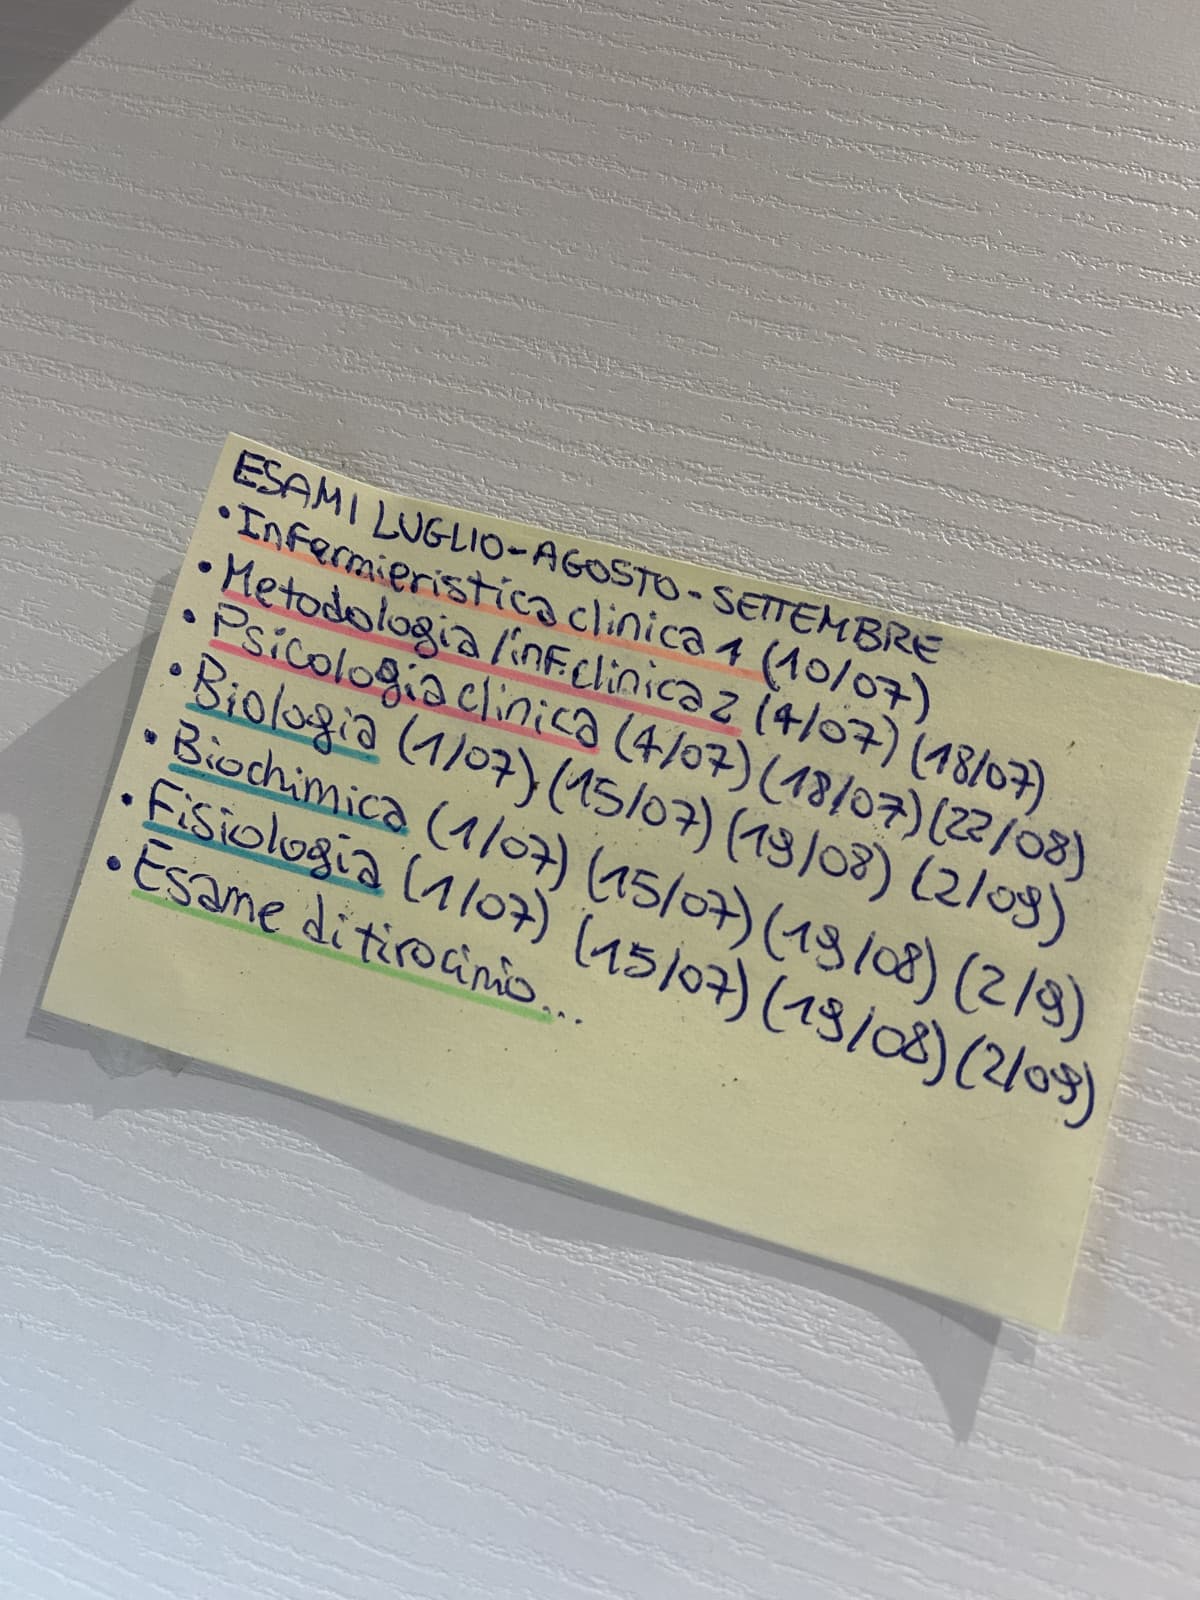 ESAMI LUGLIO-AGOSTO-SETTEMBRE
• Infermieristica clinica 1 (10/07)
• Metodologia/inf.clinica 2 (4/07) (18/07)
• Psicologia clinica (4/07) (18/07) (22/08)
• Biologia (1/07) (15/07) (19/08) (2/09)
• Biochimica (1/07) (15/07) (19/08) (2/9)
• Fisiologia (1/07) (15/07) (19/08) (2/09)
• Esame di tirocinio...